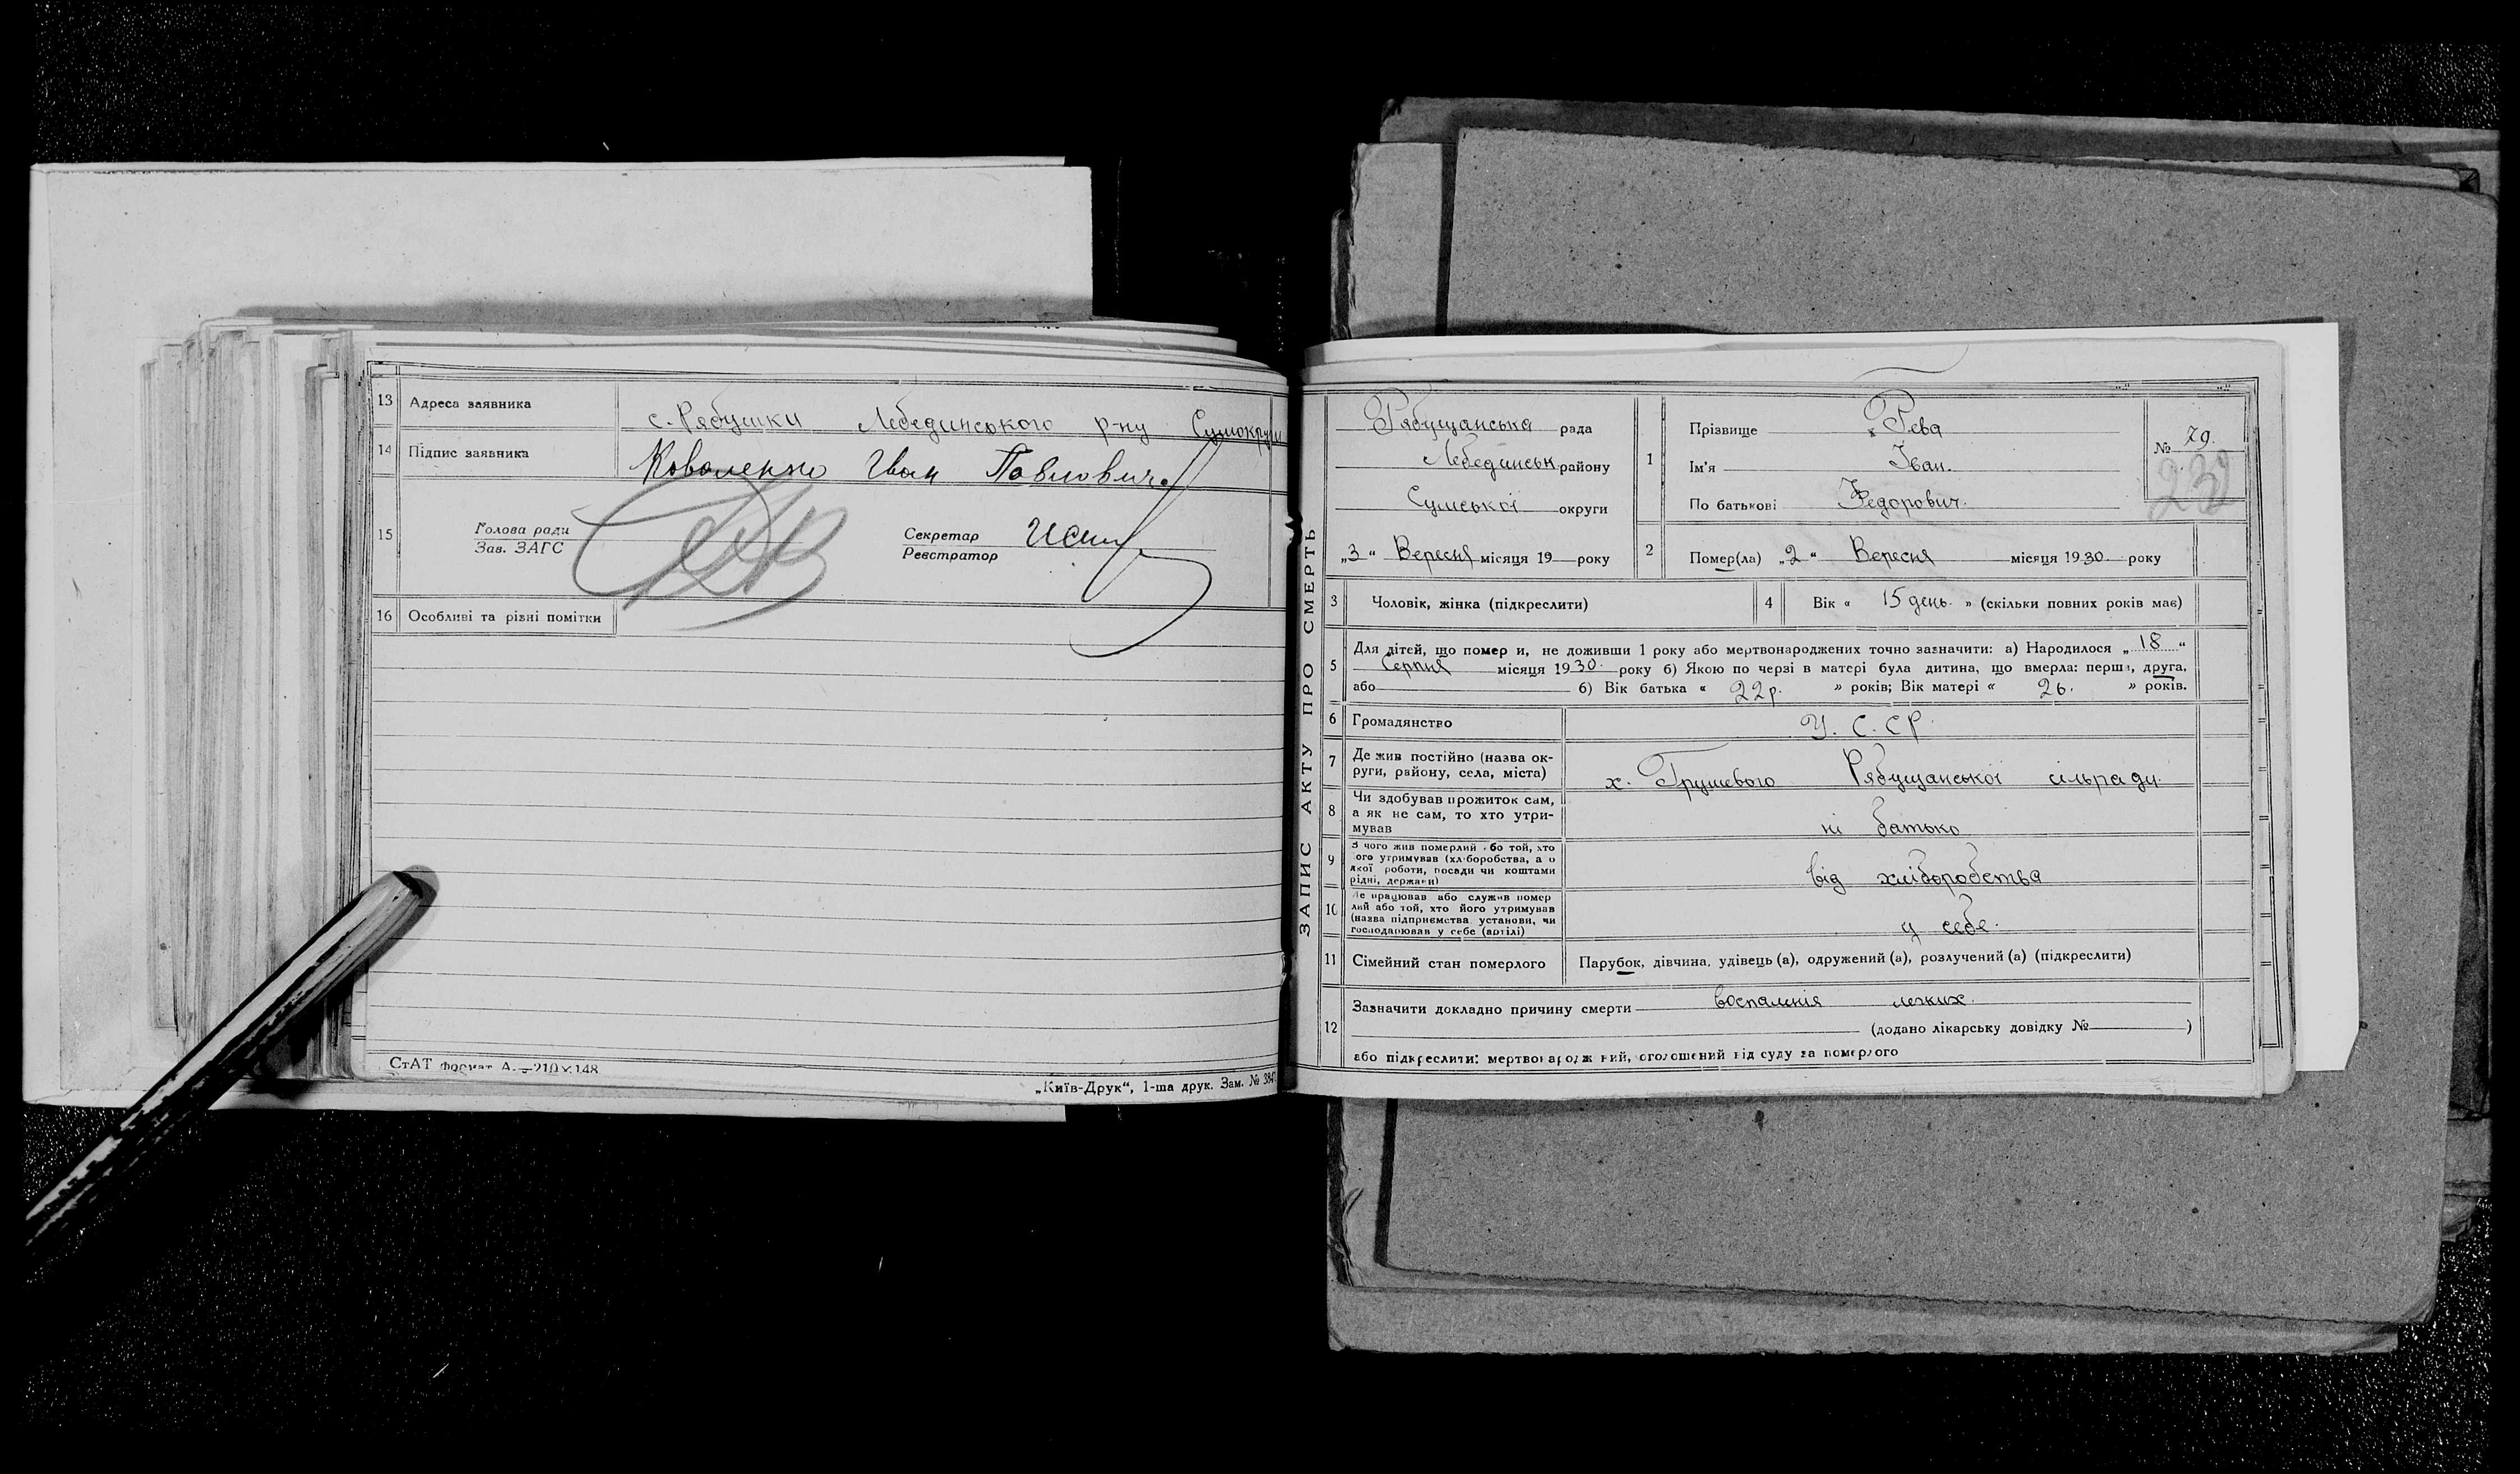 13 Адреса заявника с. Рябушки Лебединського р-ну Сумокруги
14 Підпис заявника Коваленко Іван Павлович
15 Голова ради
Зав. ЗАГС
Секретар
Реєстратор
16 Особливі та різні помітки
СтАТ Формат А.—210×148
„Київ-Друк“, 1-ша друк. Зам. № 384
ЗАПИС АКТУ ПРО СМЕРТЬ
Рябущанська рада
Лебединськ. району
Сумської округи
„3“ Вересня місяця 19 року
1 Прізвище Рева
Ім'я Іван.
По батькові Федорович.
№ 79.
239
2 Помер(ла) „2“ Вересня місяця 1930 року
3 Чоловік, жінка (підкреслити)
4 Вік « 15 день. » (скільки повних років має)
5 Для дітей, що померли, не доживши 1 року або мертвонароджених точно зазначити: а) Народилося „18“
Серпня місяця 1930. року б) Якою по черзі в матері була дитина, що вмерла: перша, друга,
або б) Вік батька « 22р. » років; Вік матері « 26. » років.
6 Громадянство У. С. С Р.
7 Де жив постійно (назва ок-
руги, району, села, міста) х. Грушевого Рябущанської сільради
8 Чи здобував прожиток сам,
а як не сам, то хто утри-
мував ні батько
9 З чого жив померлий або той, хто
його утримував (хліборобства, а о
якої роботи, посади чи коштами
рідні, держави) від хліборобства
10 Де працював або служив помер
лий або той, хто його утримував
(назва підприємства, установи, чи
господарював у себе (артілі) у себе.
11 Сімейний стан померлого Парубок, дівчина, удівець (а), одружений (а), розлучений (а) (підкреслити)
12 Зазначити докладно причину смерти воспаленія легких.
(додано лікарську довідку № )
або підкреслити: мертвонароджений, оголошений від суду за померлого